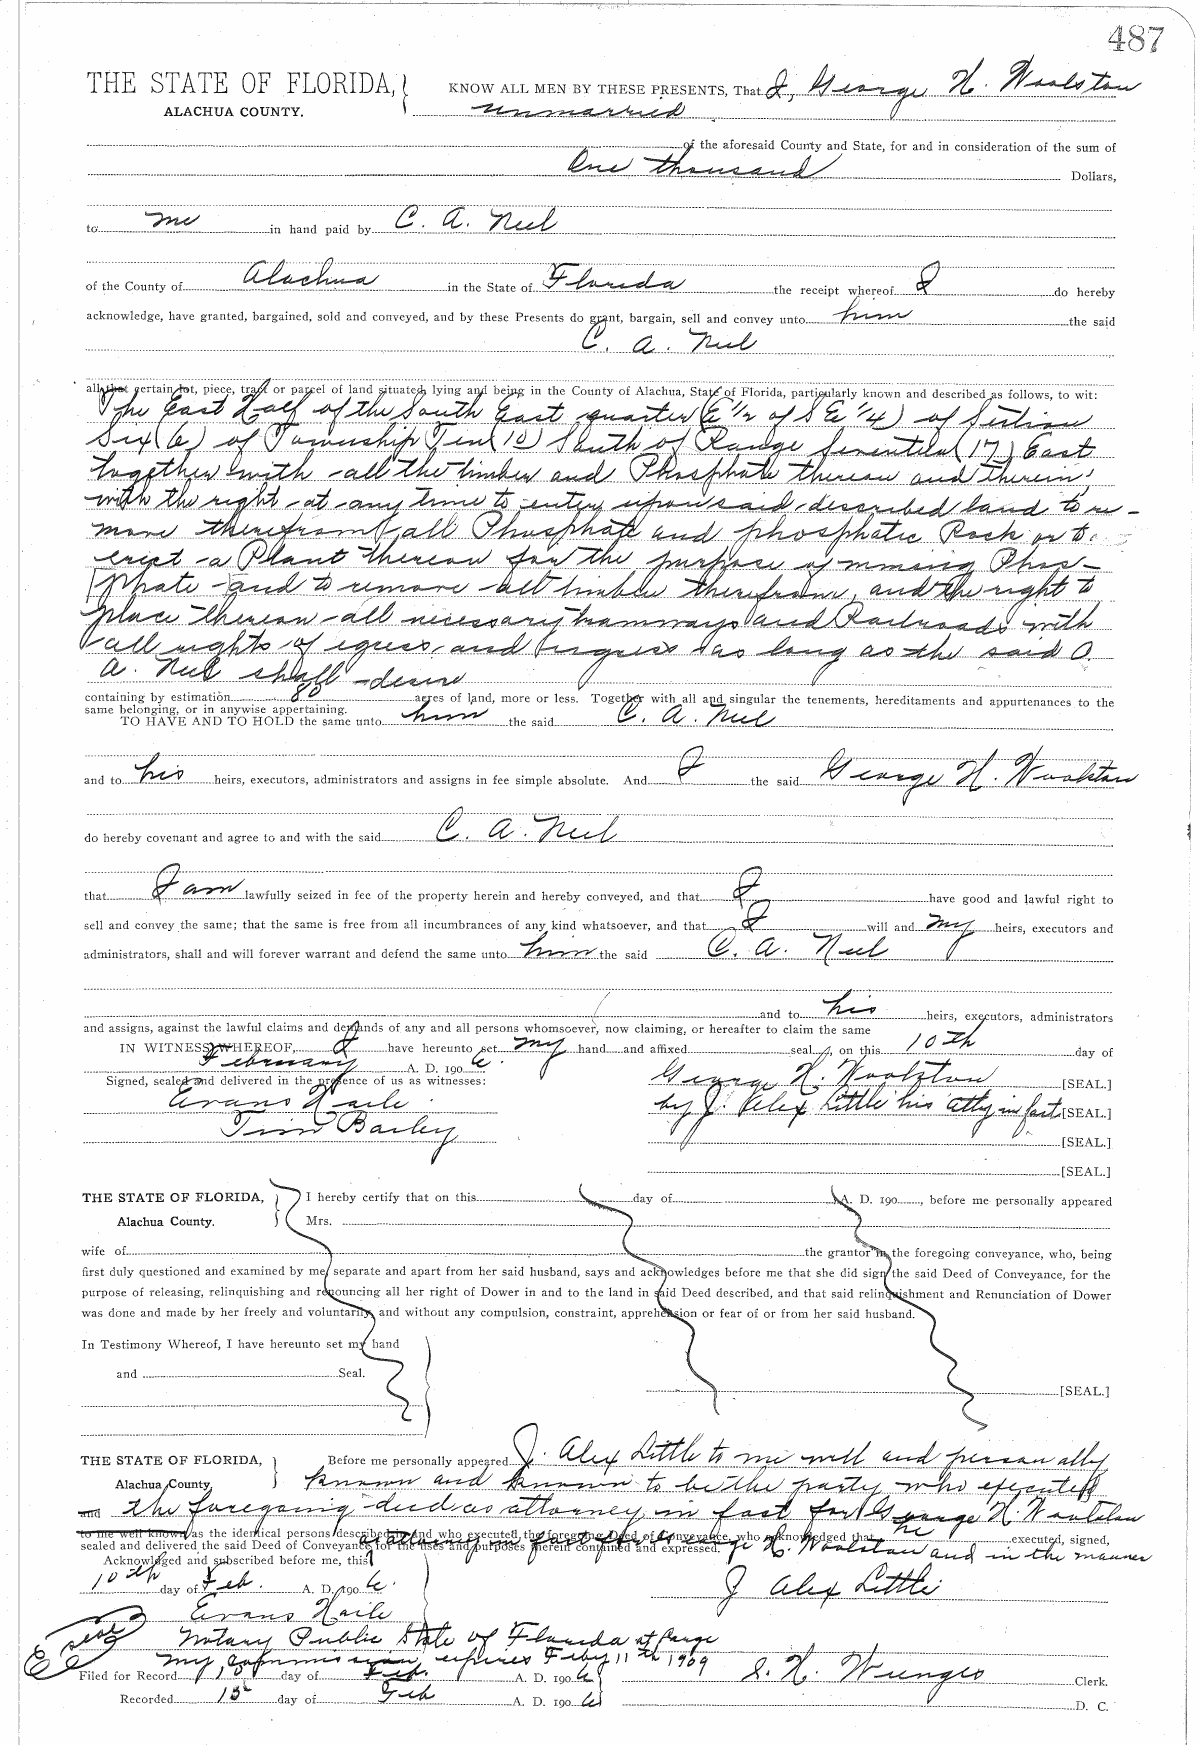 487
THE STATE OF FLORIDA, KNOW ALL MEN BY THESE PRESENTS, That I, George H. Woolston
ALACHUA COUNTY. unmarried
of the aforesaid County and State, for and in consideration of the sum of
One thousand Dollars,
to me in hand paid by C. A. Neel
of the County of Alachua in the State of Florida the receipt whereof I do hereby
acknowledge, have granted, bargained, sold and conveyed, and by these Presents do grant, bargain, sell and convey unto him the said
C. A. Neel
all that certain lot, piece, tract or parcel of land situated, lying and being in the County of Alachua, State of Florida, particularly known and described as follows, to wit:
The East Half of the South East quarter (E 1/2 of S E 1/4) of Section
Six (6) of Township Ten (10) South of Range Seventeen (17) East
together with all the timber and Phosphate thereon and therein,
with the right at any time to enter upon said described land to re-
move therefrom all Phosphate and phosphatic Rock or to
erect a Plant thereon for the purpose of mining Phos-
phate and to remove all timber therefrom, and the right to
place thereon all necessary tramways and Railroads with
all rights of egress and ingress as long as the said C.
A. Neel shall desire
containing by estimation 80 acres of land, more or less. Together with all and singular the tenements, hereditaments and appurtenances to the
same belonging, or in anywise appertaining.
TO HAVE AND TO HOLD the same unto him the said C. A. Neel
and to his heirs, executors, administrators and assigns in fee simple absolute. And I the said George H. Woolston
do hereby covenant and agree to and with the said C. A. Neel
that I am lawfully seized in fee of the property herein and hereby conveyed, and that I have good and lawful right to
sell and convey the same; that the same is free from all incumbrances of any kind whatsoever, and that I will and my heirs, executors and
administrators, shall and will forever warrant and defend the same unto him the said C. A. Neel
and to his heirs, executors, administrators
and assigns, against the lawful claims and demands of any and all persons whomsoever, now claiming, or hereafter to claim the same
IN WITNESS WHEREOF, I have hereunto set my hand and affixed seal, on this 10th day of
February A. D. 190 6.
Signed, sealed and delivered in the presence of us as witnesses: George H. Woolston [SEAL.]
Evans Haile by J. Alex Little his atty in fact [SEAL.]
Tim Bailey [SEAL.]
[SEAL.]
THE STATE OF FLORIDA, I hereby certify that on this day of A. D. 190 , before me personally appeared
Alachua County. Mrs.
wife of the grantor in the foregoing conveyance, who, being
first duly questioned and examined by me separate and apart from her said husband, says and acknowledges before me that she did sign the said Deed of Conveyance, for the
purpose of releasing, relinquishing and renouncing all her right of Dower in and to the land in said Deed described, and that said relinquishment and Renunciation of Dower
was done and made by her freely and voluntarily and without any compulsion, constraint, apprehension or fear of or from her said husband.
In Testimony Whereof, I have hereunto set my hand
and Seal.
[SEAL.]
THE STATE OF FLORIDA, Before me personally appeared J. Alex Little to me well and personally
Alachua County known and known to be the party who executed
and the foregoing deed as attorney in fact for George H. Woolston
to me well known as the identical persons described in and who executed the foregoing Deed of Conveyance, who acknowledged that he executed, signed,
sealed and delivered the said Deed of Conveyance for the uses and purposes therein contained and expressed. as attorney in fact for George H. Woolston and in the manner
Acknowledged and subscribed before me, this
10th day of Feb. A. D. 190 6. J Alex Little
Evans Haile
Notary Public State of Florida at Large
My commission expires Feby 11th 1909
Filed for Record day of Feb. A. D. 190 6 Clerk.
Recorded 15 day of Feb A. D. 190 6 D. C.